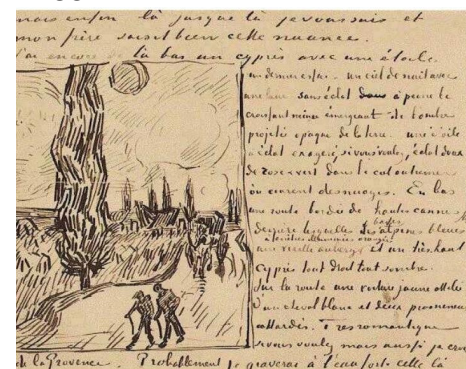 mais enfin là jusque là je vous suis et
mon frère saisit bien cette nuance.
J'ai encore de là bas un cyprès avec une étoile
un dernier essai - un ciel de nuit avec
une lune sans éclat dans à peine le
croissant mince émergeant de l'ombre
projetée opaque de la terre - une étoile
à éclat exagéré, si vous voulez, éclat doux
de rose & vert dans le ciel outremer
où courent des nuages. En bas
une route bordée de hautes cannes
derrière lesquelles les basses alpines bleues
une vieille auberge à fenêtres illuminées orangé et un très haut
cyprès tout droit tout sombre.
Sur la route une voiture jaune attelée
d'un cheval blanc et deux promeneurs
attardés. Très romantique
si vous voulez mais aussi je crois
de la Provence. Probablement je graverai à l'eau forte celle là